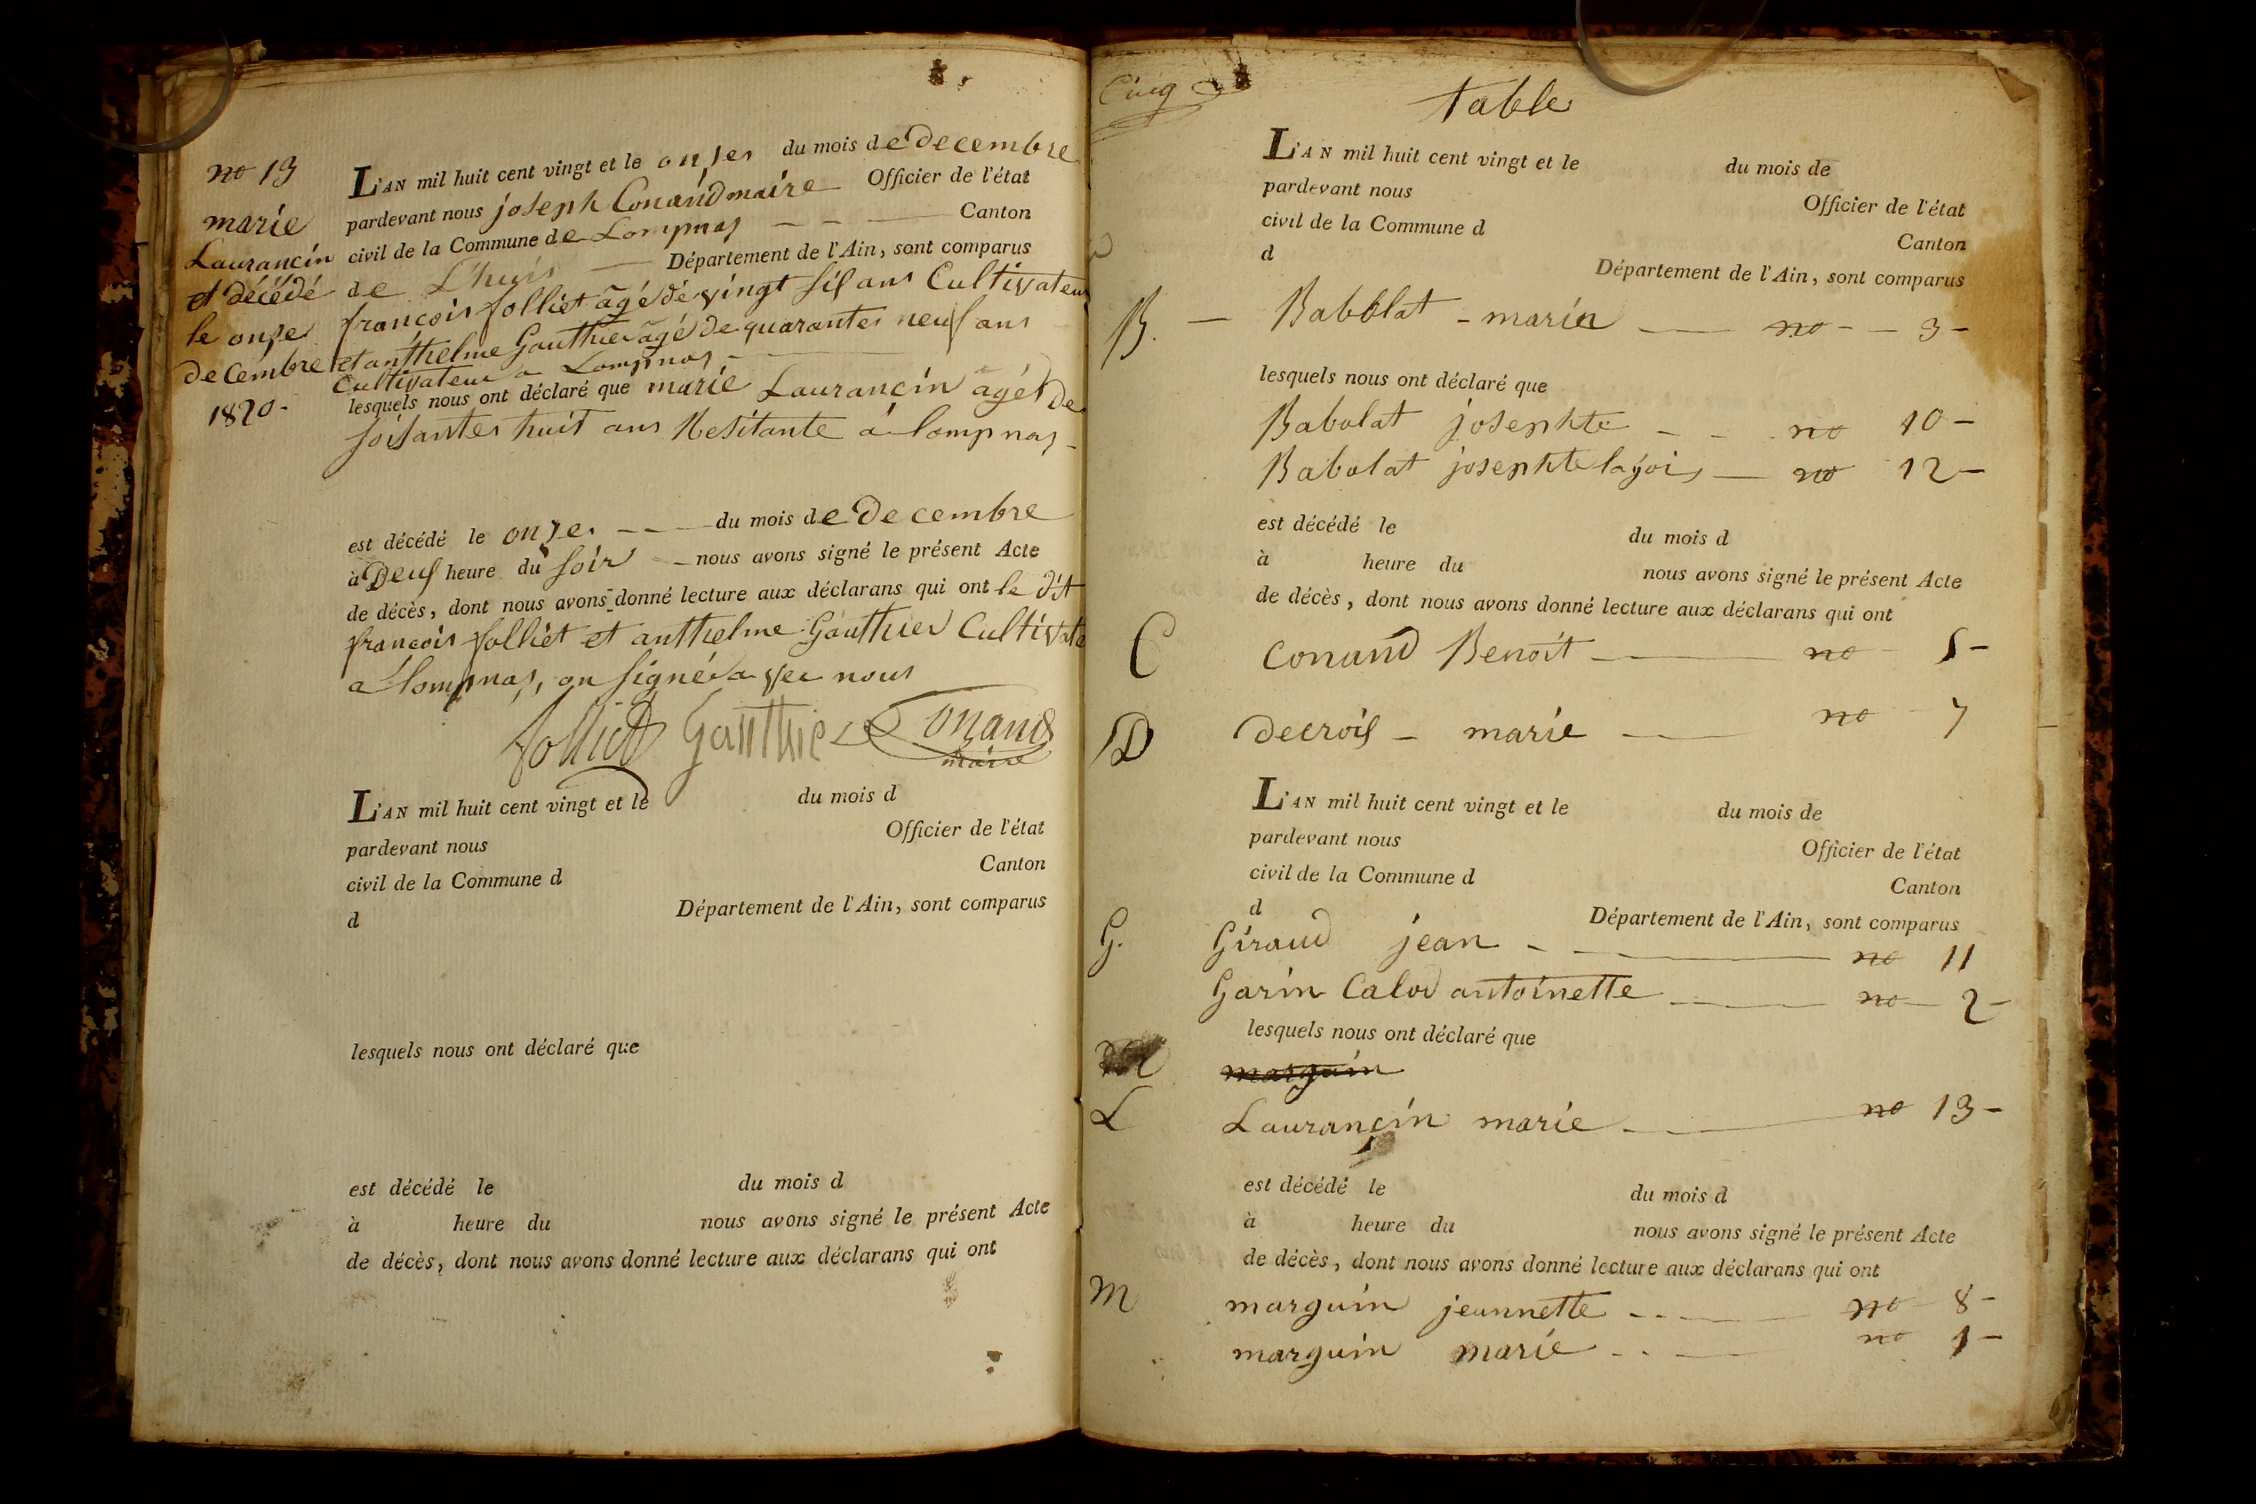 no 13
marie
Laurancin
et décédé
le onze
decembre
1820-
L'AN mil huit cent vingt et le onzes du mois de Decembre
pardevant nous joseph Conand maire Officier de l'état
civil de la Commune de Lompnas Canton
de L'huis Département de l'Ain, sont comparus
françois folliet âgé de vingt sis ans Cultivateur
et anthelme Gauthier âgé de quarantes neuf ans
Cultivateur a Lompnas
lesquels nous ont déclaré que marie Laurancin âgés De
soisantes huit ans Resitante á lompnas
est décédé le onzes du mois de Decembre
à Deus heure du soir nous avons signé le présent Acte
de décès, dont nous avons donné lecture aux déclarans qui ont le dit
françois folliet et anthelme Gauthier Cultivate
a lompnas, on signé avec nous
folliet Gauthier Conand
maire
L'AN mil huit cent vingt et le du mois d
pardevant nous Officier de l'état
civil de la Commune d Canton
d Département de l'Ain, sont comparus
lesquels nous ont déclaré que
est décédé le du mois d
à heure du nous avons signé le présent Acte
de décès, dont nous avons donné lecture aux déclarans qui ont
Cinq
table
L'AN mil huit cent vingt et le du mois de
pardevant nous Officier de l'état
civil de la Commune d Canton
d Département de l'Ain, sont comparus
B. — Babblat - marie no - 3 -
lesquels nous ont déclaré que
Babolat josephte no 10 -
Babolat josephte no 12 -
est décédé le du mois d
à heure du nous avons signé le présent Acte
de décès, dont nous avons donné lecture aux déclarans qui ont
C Conand Benoit no 5 -
D Decrois - marie no 7
L'AN mil huit cent vingt et le du mois de
pardevant nous Officier de l'état
civil de la Commune d Canton
d Département de l'Ain, sont comparus
G. Giraud jean no 11
Garin Calod antoinette no 2 -
lesquels nous ont déclaré que
M marguin
L Laurançin marie no 13 -
est décédé le du mois d
à heure du nous avons signé le présent Acte
de décès, dont nous avons donné lecture aux déclarans qui ont
M marguin jeannette no 8 -
marguin marie no 1 -